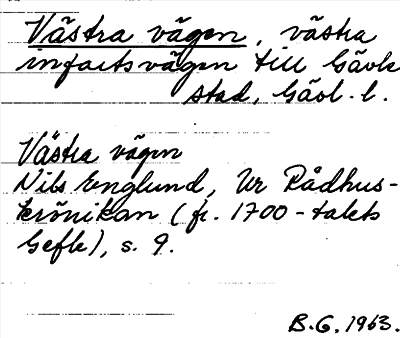 Västra vägen, västra
infartsvägen till Gävle
stad, Gävl. l.
Västra vägen
Nils Englund, Ur Rådhus-
krönikan (fr. 1700-talets
Gefle), s. 9.
B.G. 1963.